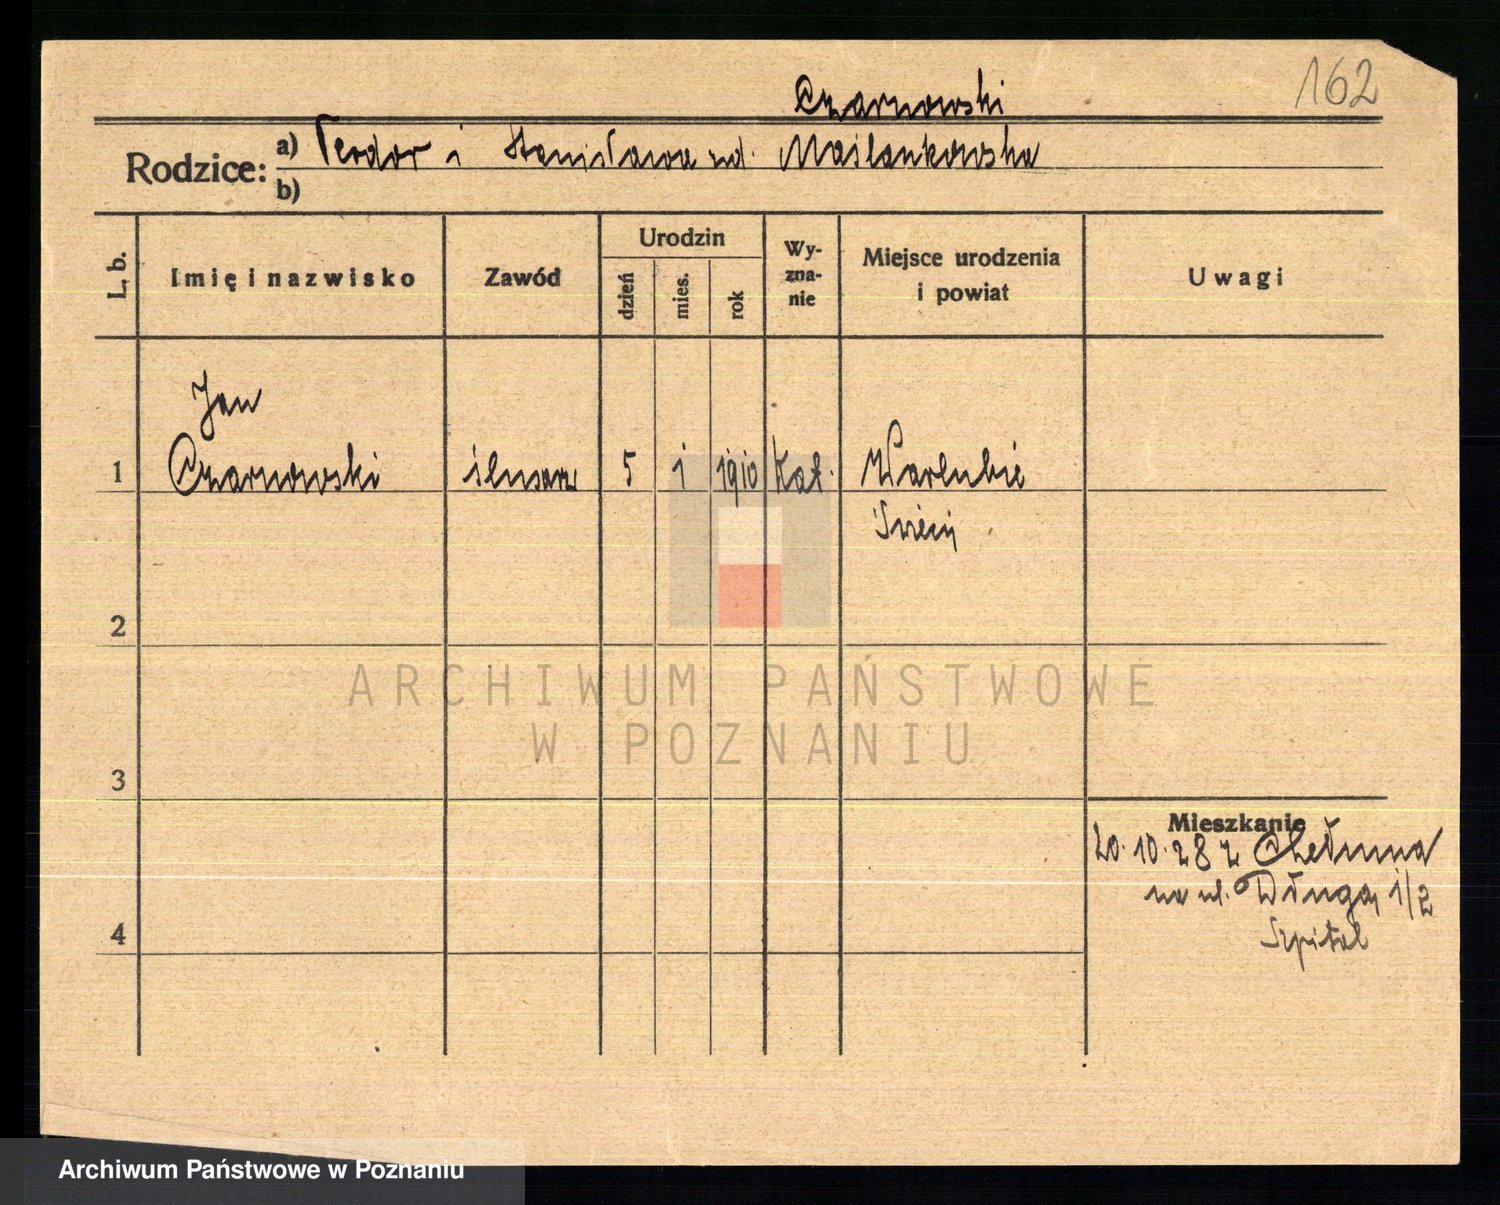 162
Czarnowski
Rodzice: a) Teodor i Stanisława ud. Maślankowska
b)
L. b.
Imię i nazwisko
Zawód
Urodzin
dzień
mies.
rok
Wy-
zna-
nie
Miejsce urodzenia
i powiat
Uwagi
Jan
1 Czarnowski ślusarz 5 1 1910 Kat. Warlubie
Świeci
2
ARCHIWUM PAŃSTWOWE
W POZNANIU
3
Mieszkanie
20.10.28 z Chełmna
na ul. Długą 1/2
Szpital
4
Archiwum Państwowe w Poznaniu